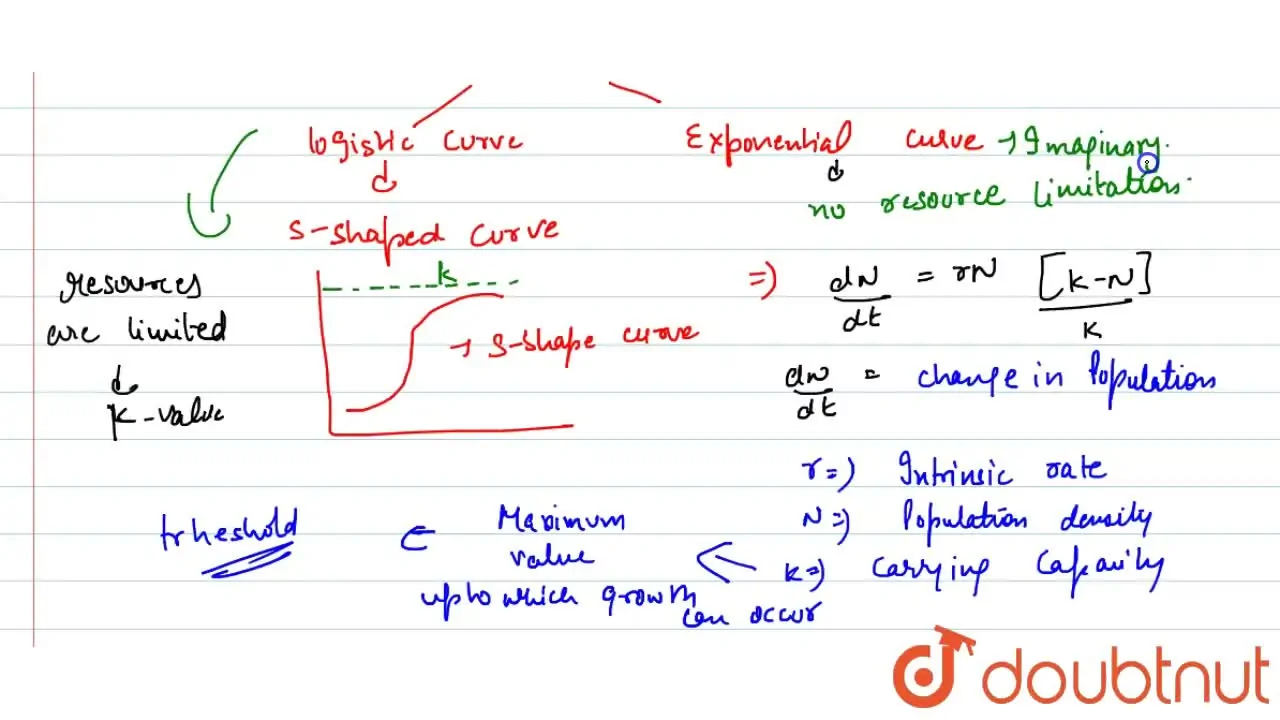 logistic curve
Exponential curve → Imaginary.
no resource limitation.
S-shaped curve
k
resources
are limited
k-value
→ S-shape curve
⇒ dN/dt = rN [K-N]/K
dN/dt = change in Population
r ⇒ Intrinsic rate
N ⇒ Population density
K ⇒ Carrying Capacity
Maximum
value
upto which growth
can occur
trheshold
doubtnut